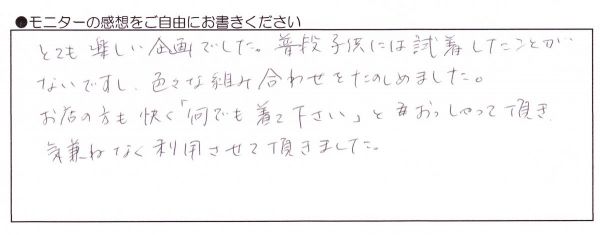 ●モニターの感想をご自由にお書きください
とても楽しい企画でした。普段子供には試着したことが
ないですし、色々な組み合わせをたのしめました。
お店の方も快く「何でも着て下さい」とおっしゃって頂き
気兼ねなく利用させて頂きました。